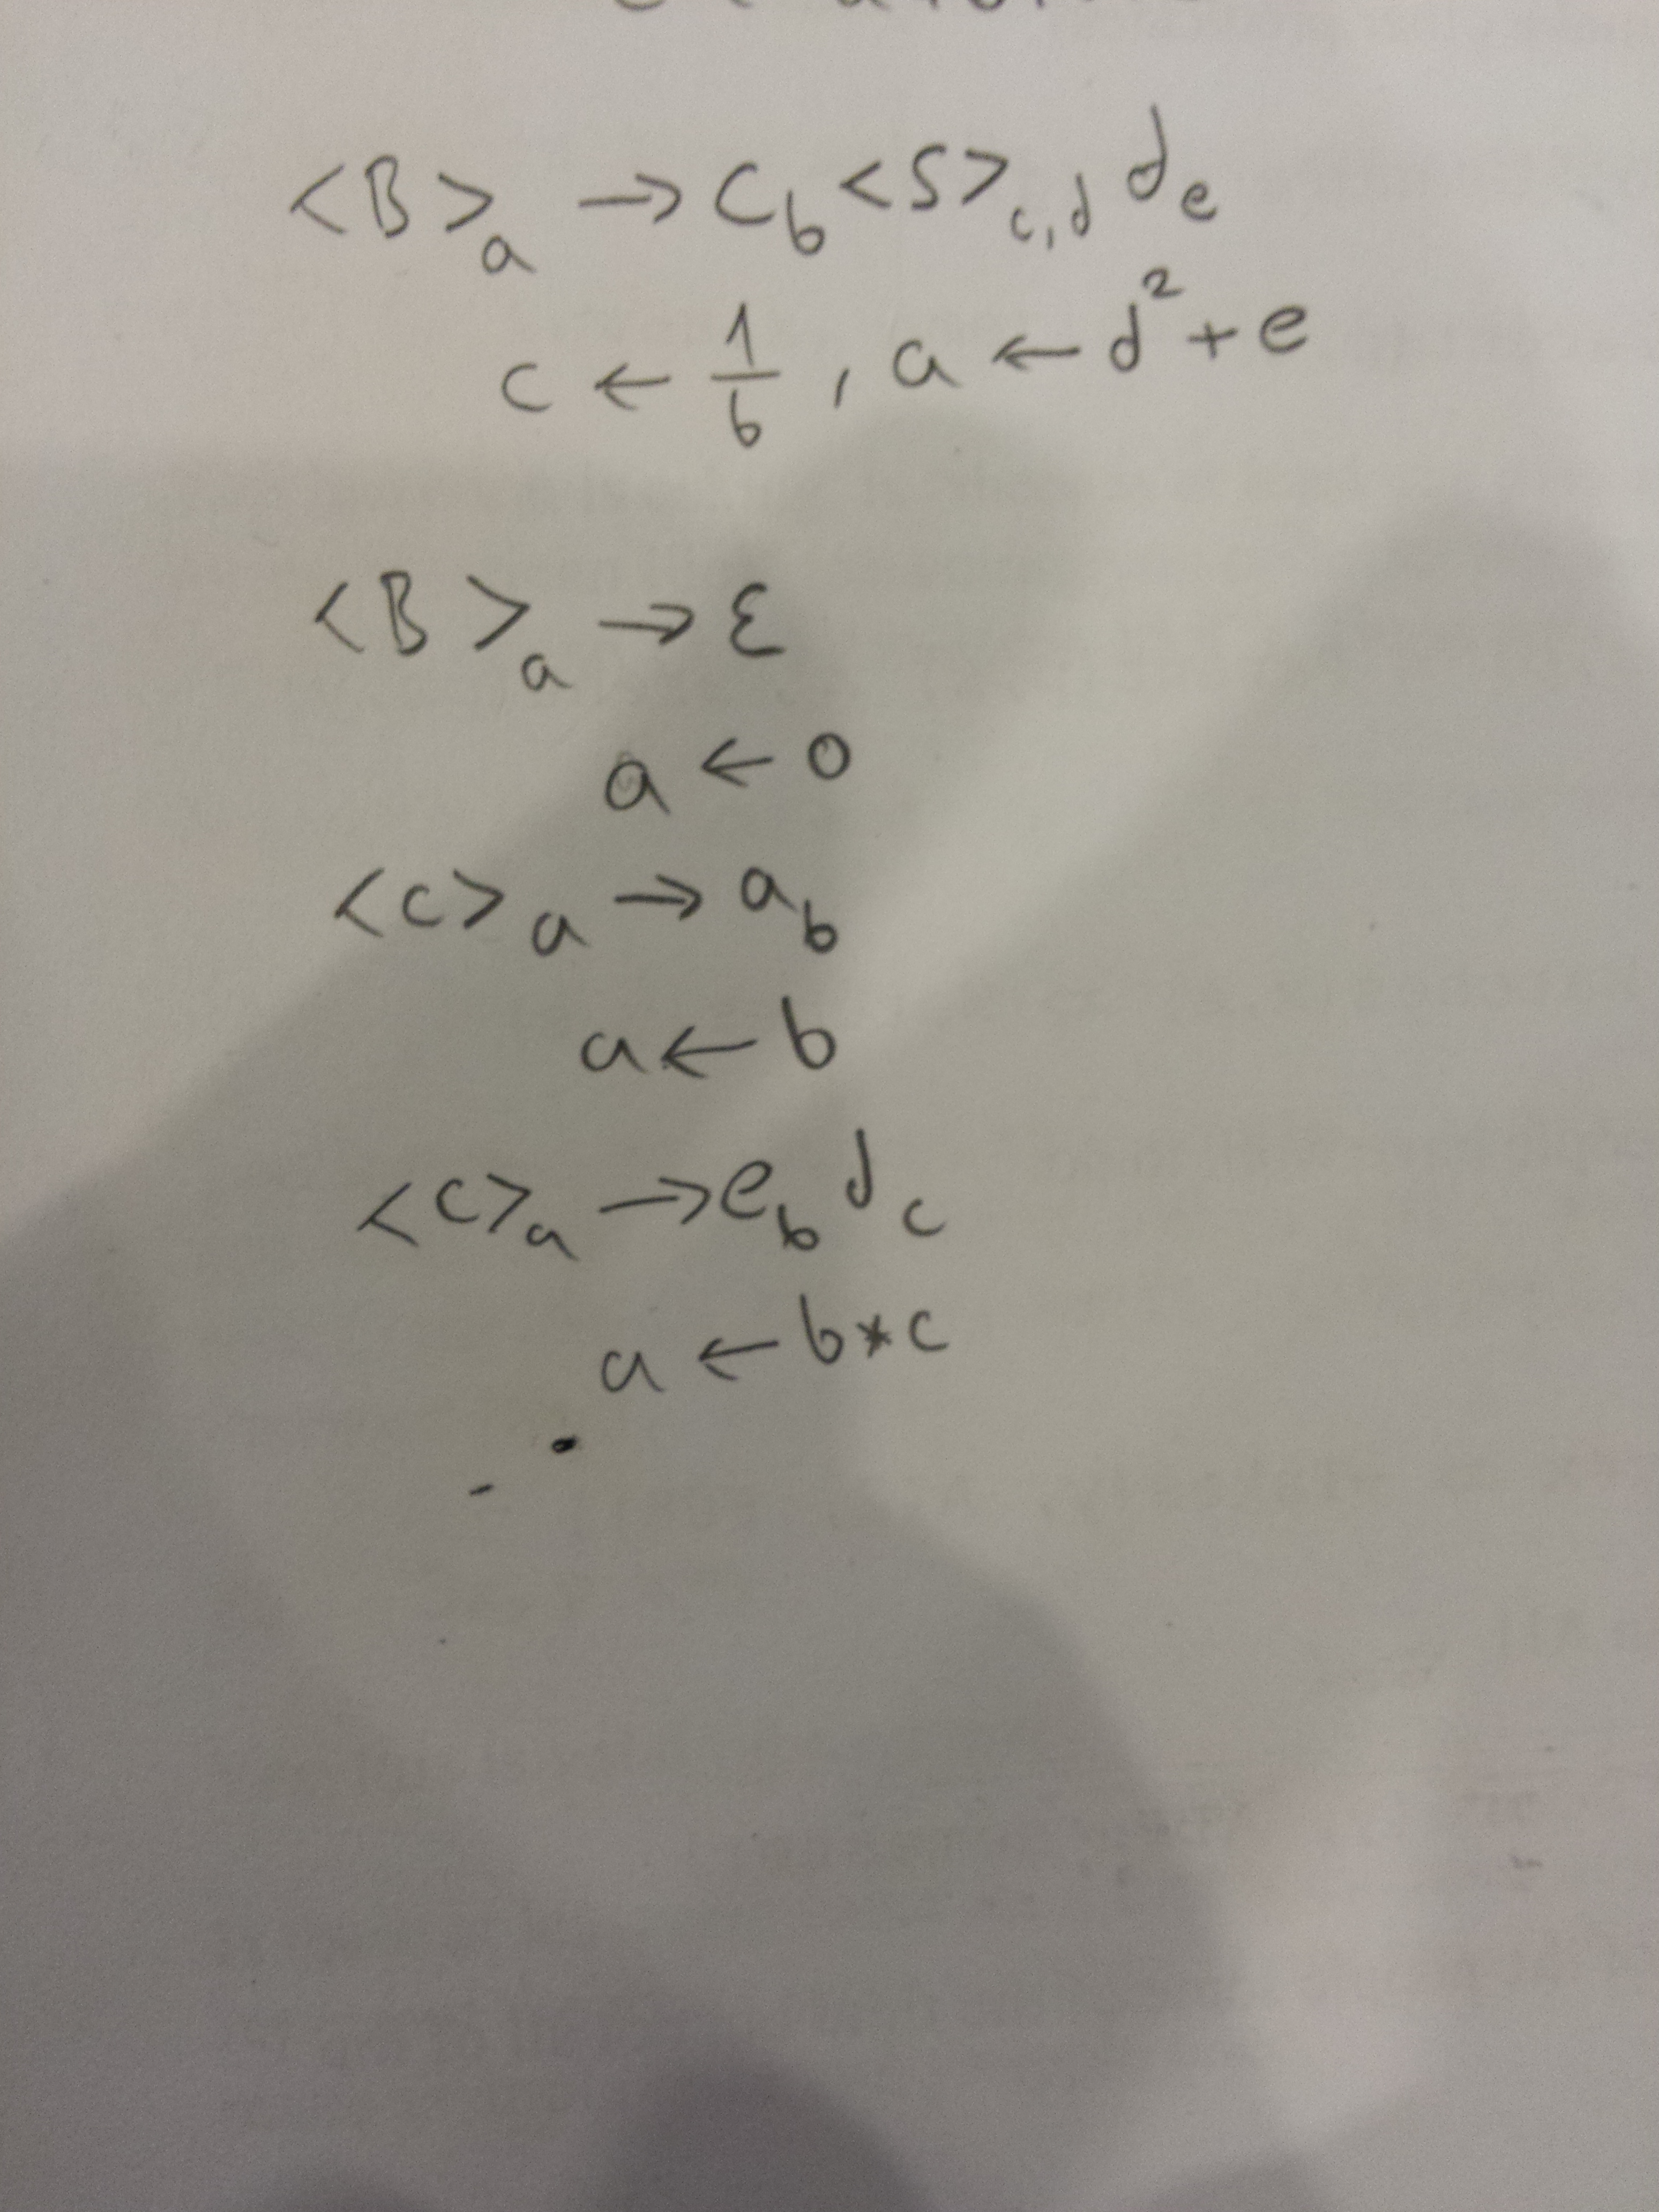 <B>ₐ → C_b <S>_c,d d_e
c ← 1/b , a ← d² + e
<B>ₐ → ε
a ← 0
<c>ₐ → a_b
a ← b
<c>ₐ → e_b d_c
a ← b * c